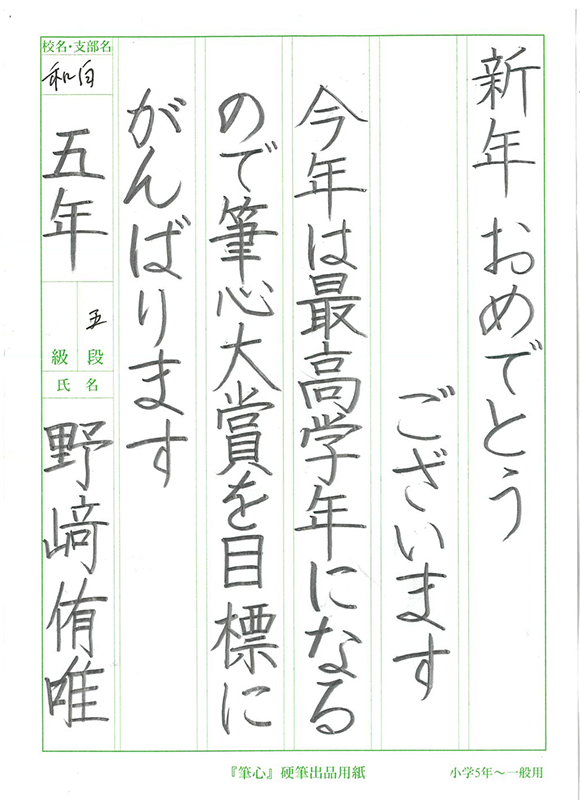 新年おめでとう
ございます
今年は最高学年になる
ので筆心大賞を目標に
がんばります
校名・支部名
和白
五年
五
段
級
氏名
野﨑侑唯
『筆心』硬筆出品用紙
小学5年〜一般用